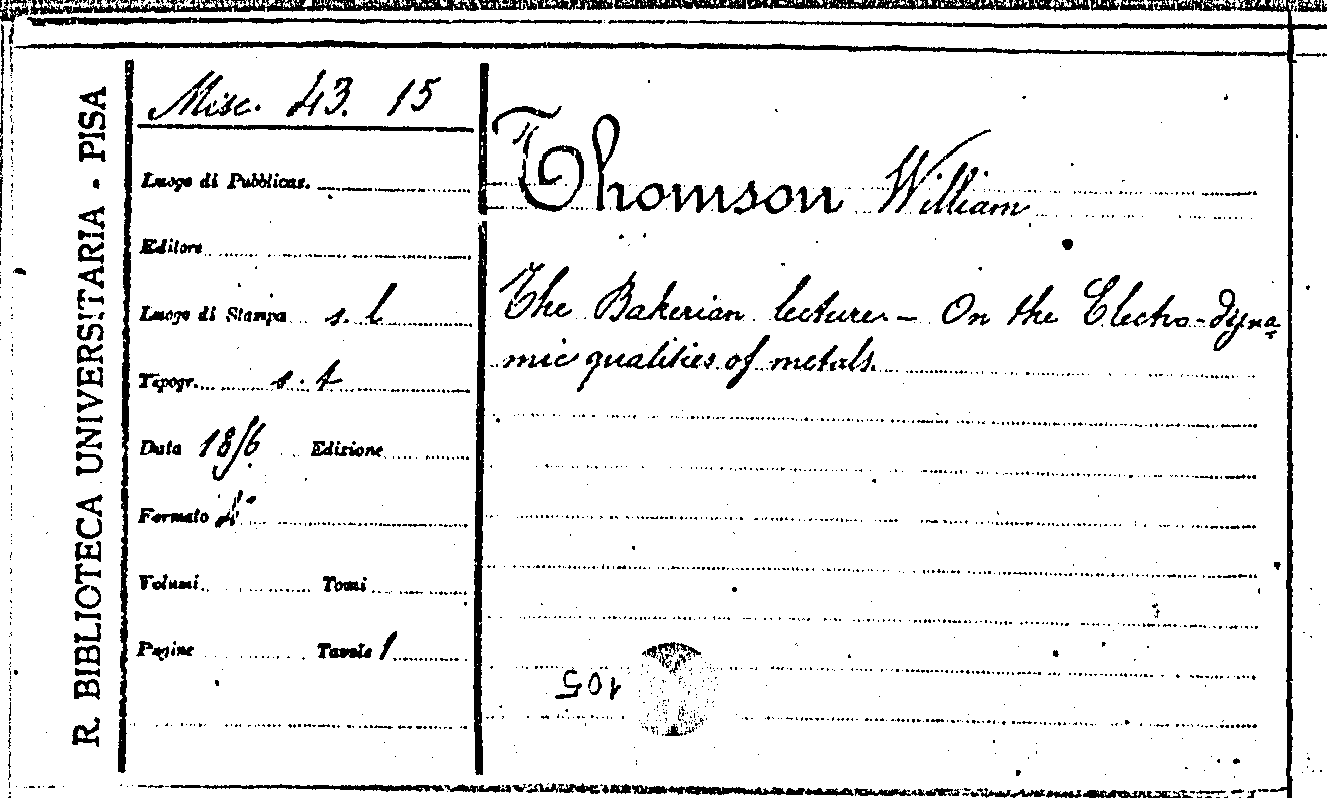 R. BIBLIOTECA UNIVERSITARIA - PISA
Misc. 43. 15
Luogo di Pubblicaz.
Editore
Luogo di Stampa s. l
Tipogr. s. t
Data 1856 Edizione
Formato 4°
Volumi Tomi
Pagine Tavole 1
Thomson William
The Bakerian lecture – On the Electro-dyna-
mic qualities of metals.
105